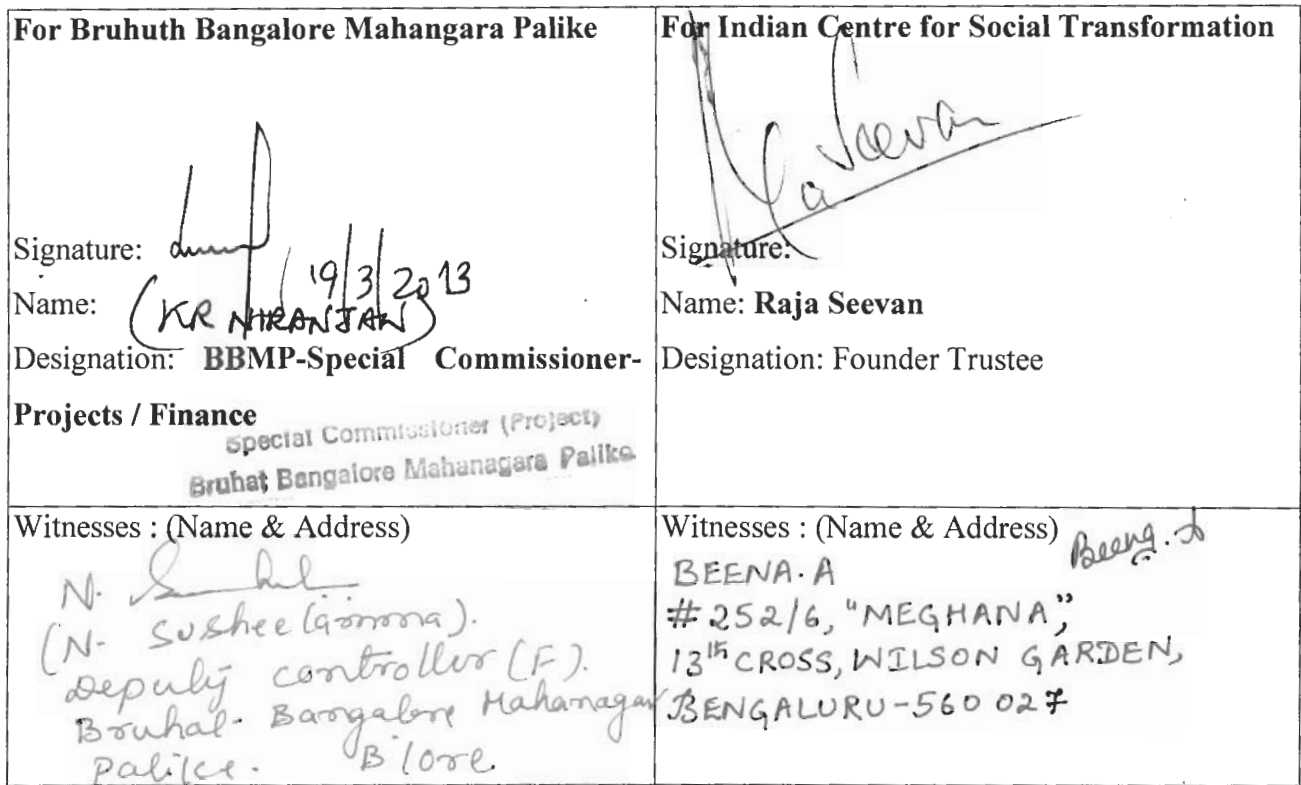 For Bruhuth Bangalore Mahangara Palike
Signature:
19/3/2013
Name: (KR NIRANJAN)
Designation: BBMP-Special Commissioner-
Projects / Finance
Special Commissioner (Project)
Bruhat Bangalore Mahanagara Palike
For Indian Centre for Social Transformation
Raja Seevan
Signature:
Name: Raja Seevan
Designation: Founder Trustee
Witnesses : (Name & Address)
N.
(N. Susheelamma).
Deputy controller (F).
Bruhat Bangalore Mahanagar
Palike. B'lore
Witnesses : (Name & Address)
Beena. A
BEENA. A
#252/6, "MEGHANA",
13th CROSS, WILSON GARDEN,
BENGALURU-560 027